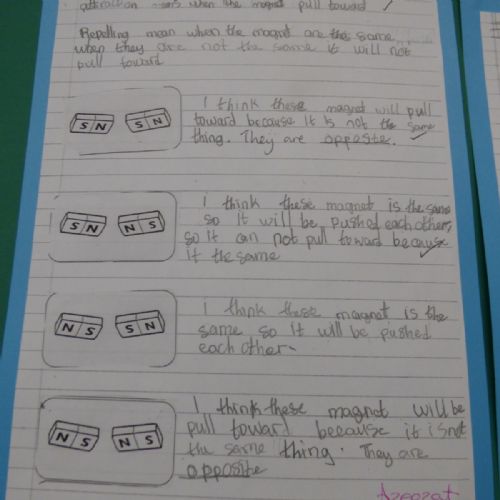 attraction means when the magnet pull toward
Repelling mean when the magnet are the same
when they are not the same it will not
pull toward
S N S N
I think these magnet will pull
toward because it is not the same
thing. They are opposite.
S N N S
I think these magnet is the same
so it will be pushed each other,
so it can not pull toward because
it the same
N S S N
I think these magnet is the
same so it will be pushed
each other.
N S N S
I think these magnet will be
pull toward because it is not
the same thing. They are
opposite